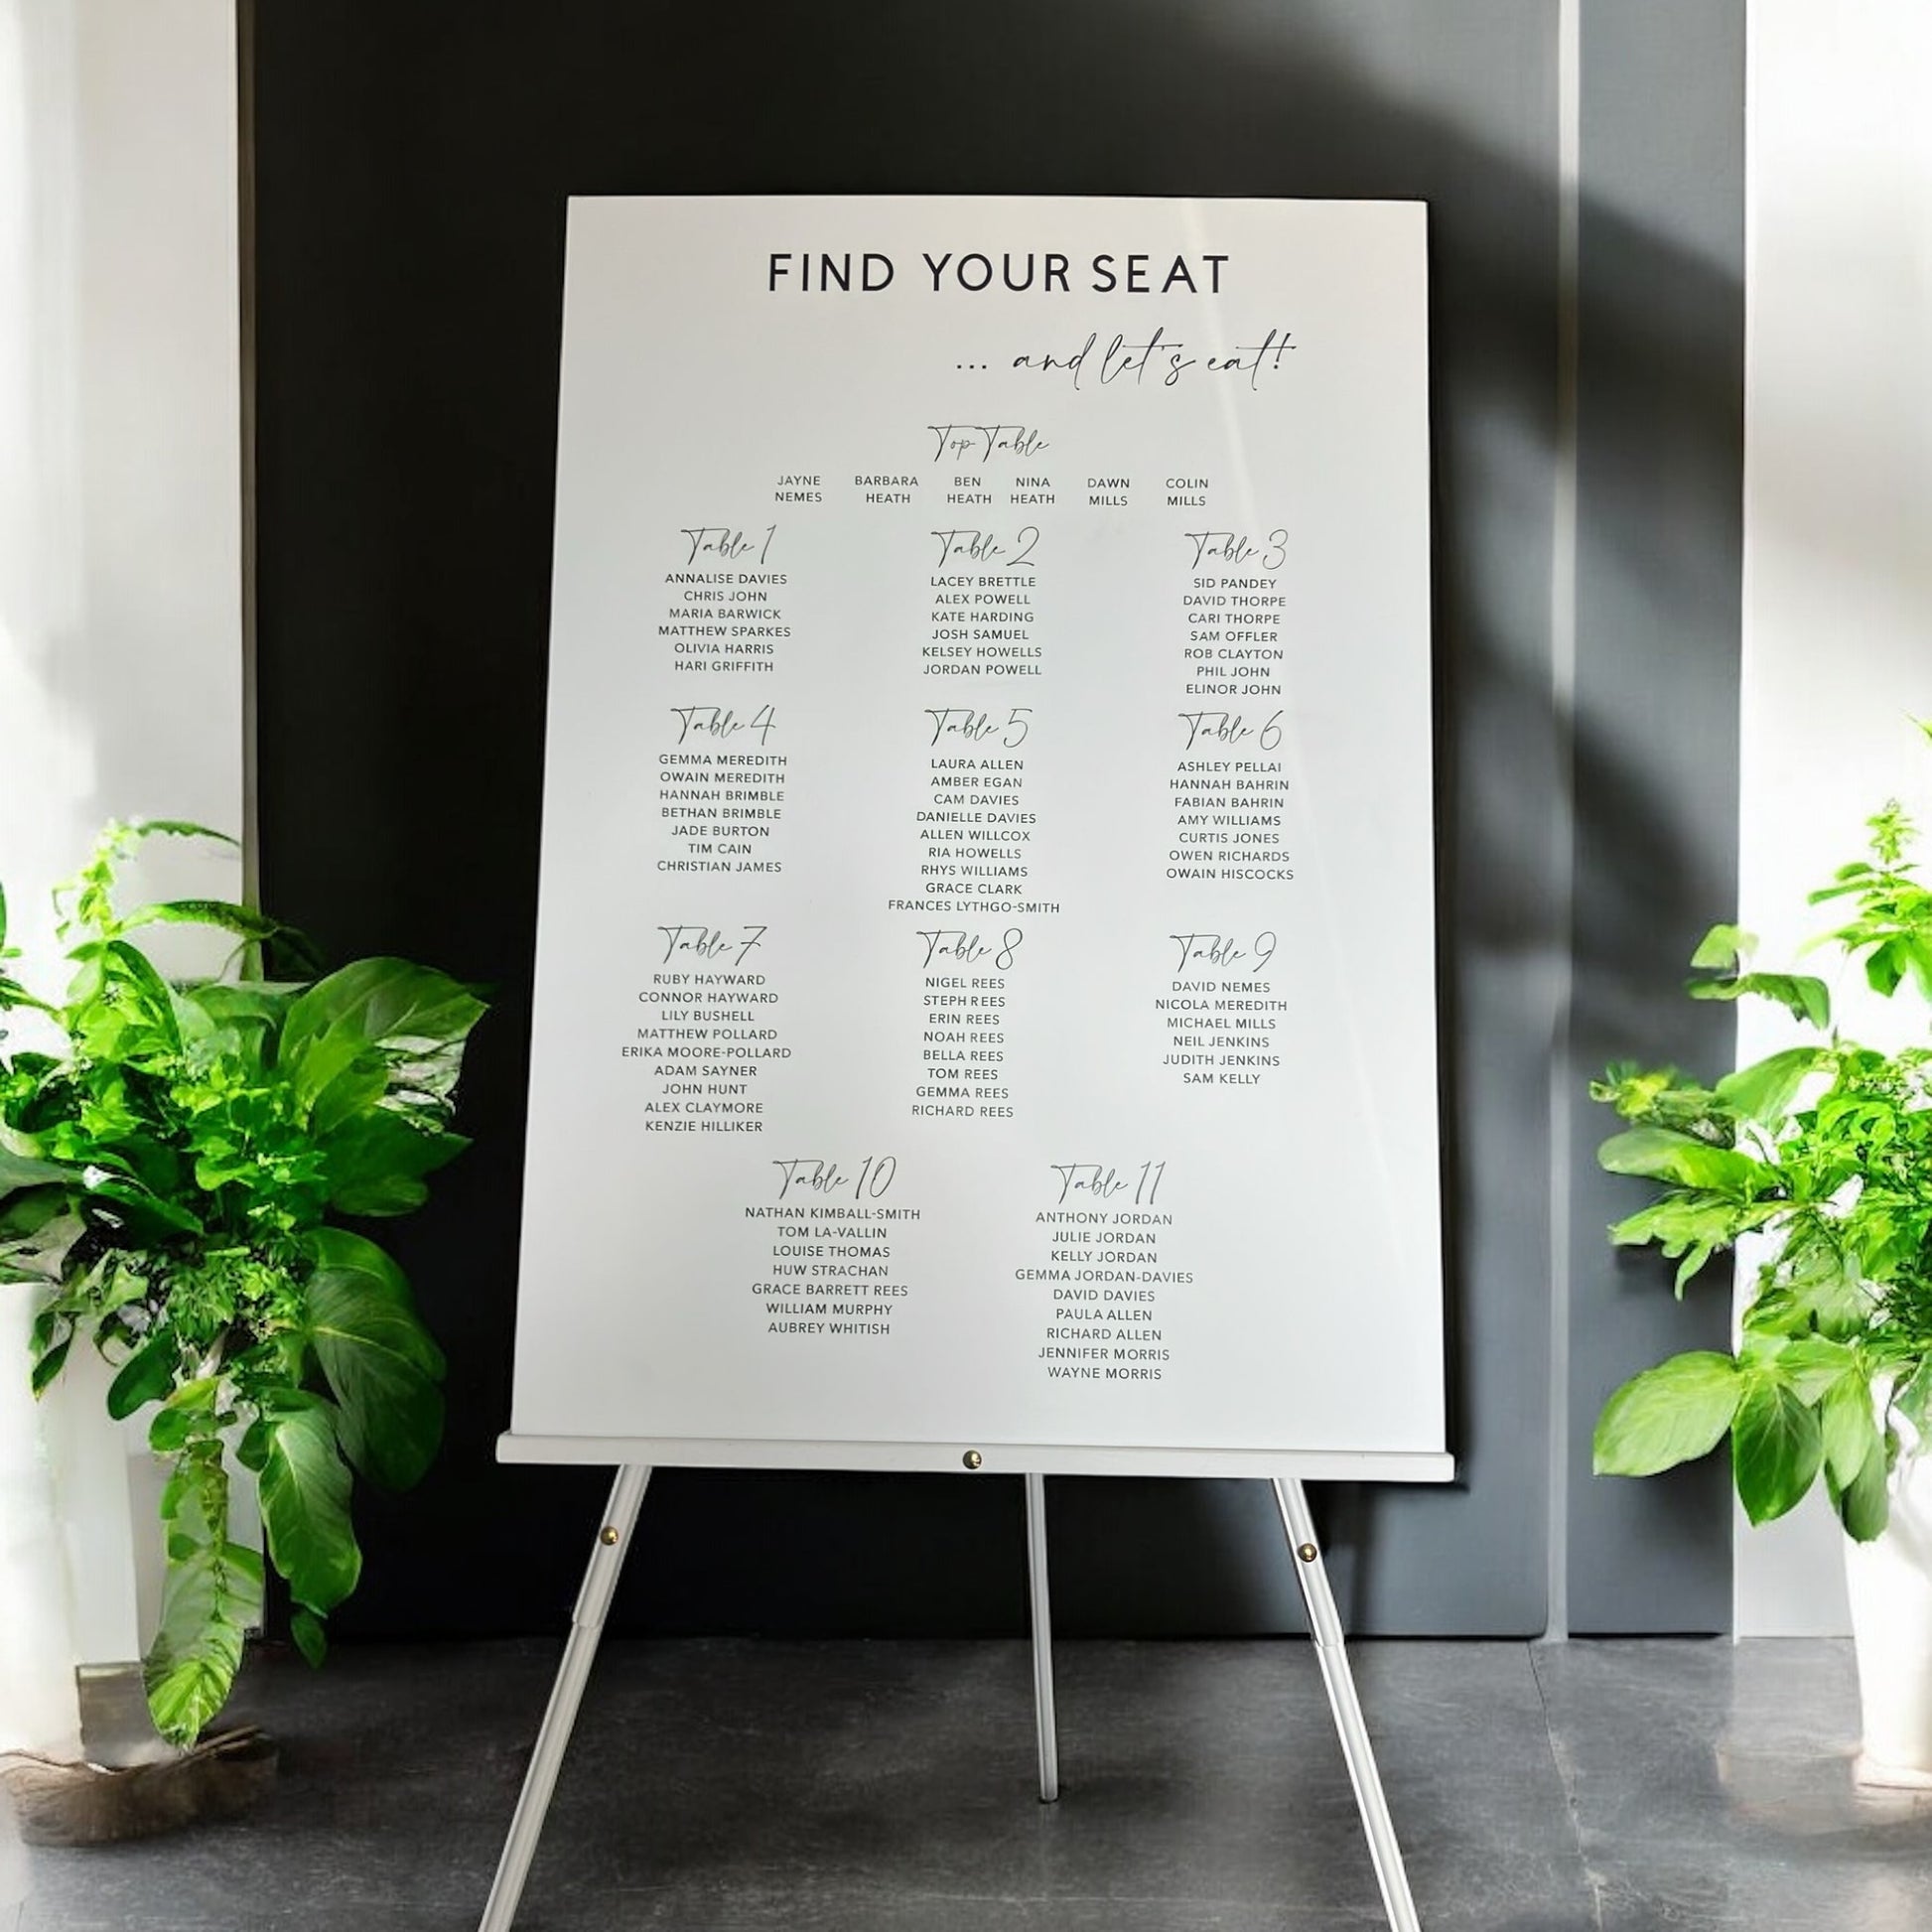 FIND YOUR SEAT
... and let's eat!
Top Table
JAYNE NEMES BARBARA HEATH BEN HEATH NINA HEATH DAWN MILLS COLIN MILLS
Table 1
ANNALISE DAVIES
CHRIS JOHN
MARIA BARWICK
MATTHEW SPARKES
OLIVIA HARRIS
HARI GRIFFITH
Table 2
LACEY BRETTLE
ALEX POWELL
KATE HARDING
JOSH SAMUEL
KELSEY HOWELLS
JORDAN POWELL
Table 3
SID PANDEY
DAVID THORPE
CARI THORPE
SAM OFFLER
ROB CLAYTON
PHIL JOHN
ELINOR JOHN
Table 4
GEMMA MEREDITH
OWAIN MEREDITH
HANNAH BRIMBLE
BETHAN BRIMBLE
JADE BURTON
TIM CAIN
CHRISTIAN JAMES
Table 5
LAURA ALLEN
AMBER EGAN
CAM DAVIES
DANIELLE DAVIES
ALLEN WILLCOX
RIA HOWELLS
RHYS WILLIAMS
GRACE CLARK
FRANCES LYTHGO-SMITH
Table 6
ASHLEY PELLAI
HANNAH BAHRIN
FABIAN BAHRIN
AMY WILLIAMS
CURTIS JONES
OWEN RICHARDS
OWAIN HISCOCKS
Table 7
RUBY HAYWARD
CONNOR HAYWARD
LILY BUSHELL
MATTHEW POLLARD
ERIKA MOORE-POLLARD
ADAM SAYNER
JOHN HUNT
ALEX CLAYMORE
KENZIE HILLIKER
Table 8
NIGEL REES
STEPH REES
ERIN REES
NOAH REES
BELLA REES
TOM REES
GEMMA REES
RICHARD REES
Table 9
DAVID NEMES
NICOLA MEREDITH
MICHAEL MILLS
NEIL JENKINS
JUDITH JENKINS
SAM KELLY
Table 10
NATHAN KIMBALL-SMITH
TOM LA-VALLIN
LOUISE THOMAS
HUW STRACHAN
GRACE BARRETT REES
WILLIAM MURPHY
AUBREY WHITISH
Table 11
ANTHONY JORDAN
JULIE JORDAN
KELLY JORDAN
GEMMA JORDAN-DAVIES
DAVID DAVIES
PAULA ALLEN
RICHARD ALLEN
JENNIFER MORRIS
WAYNE MORRIS